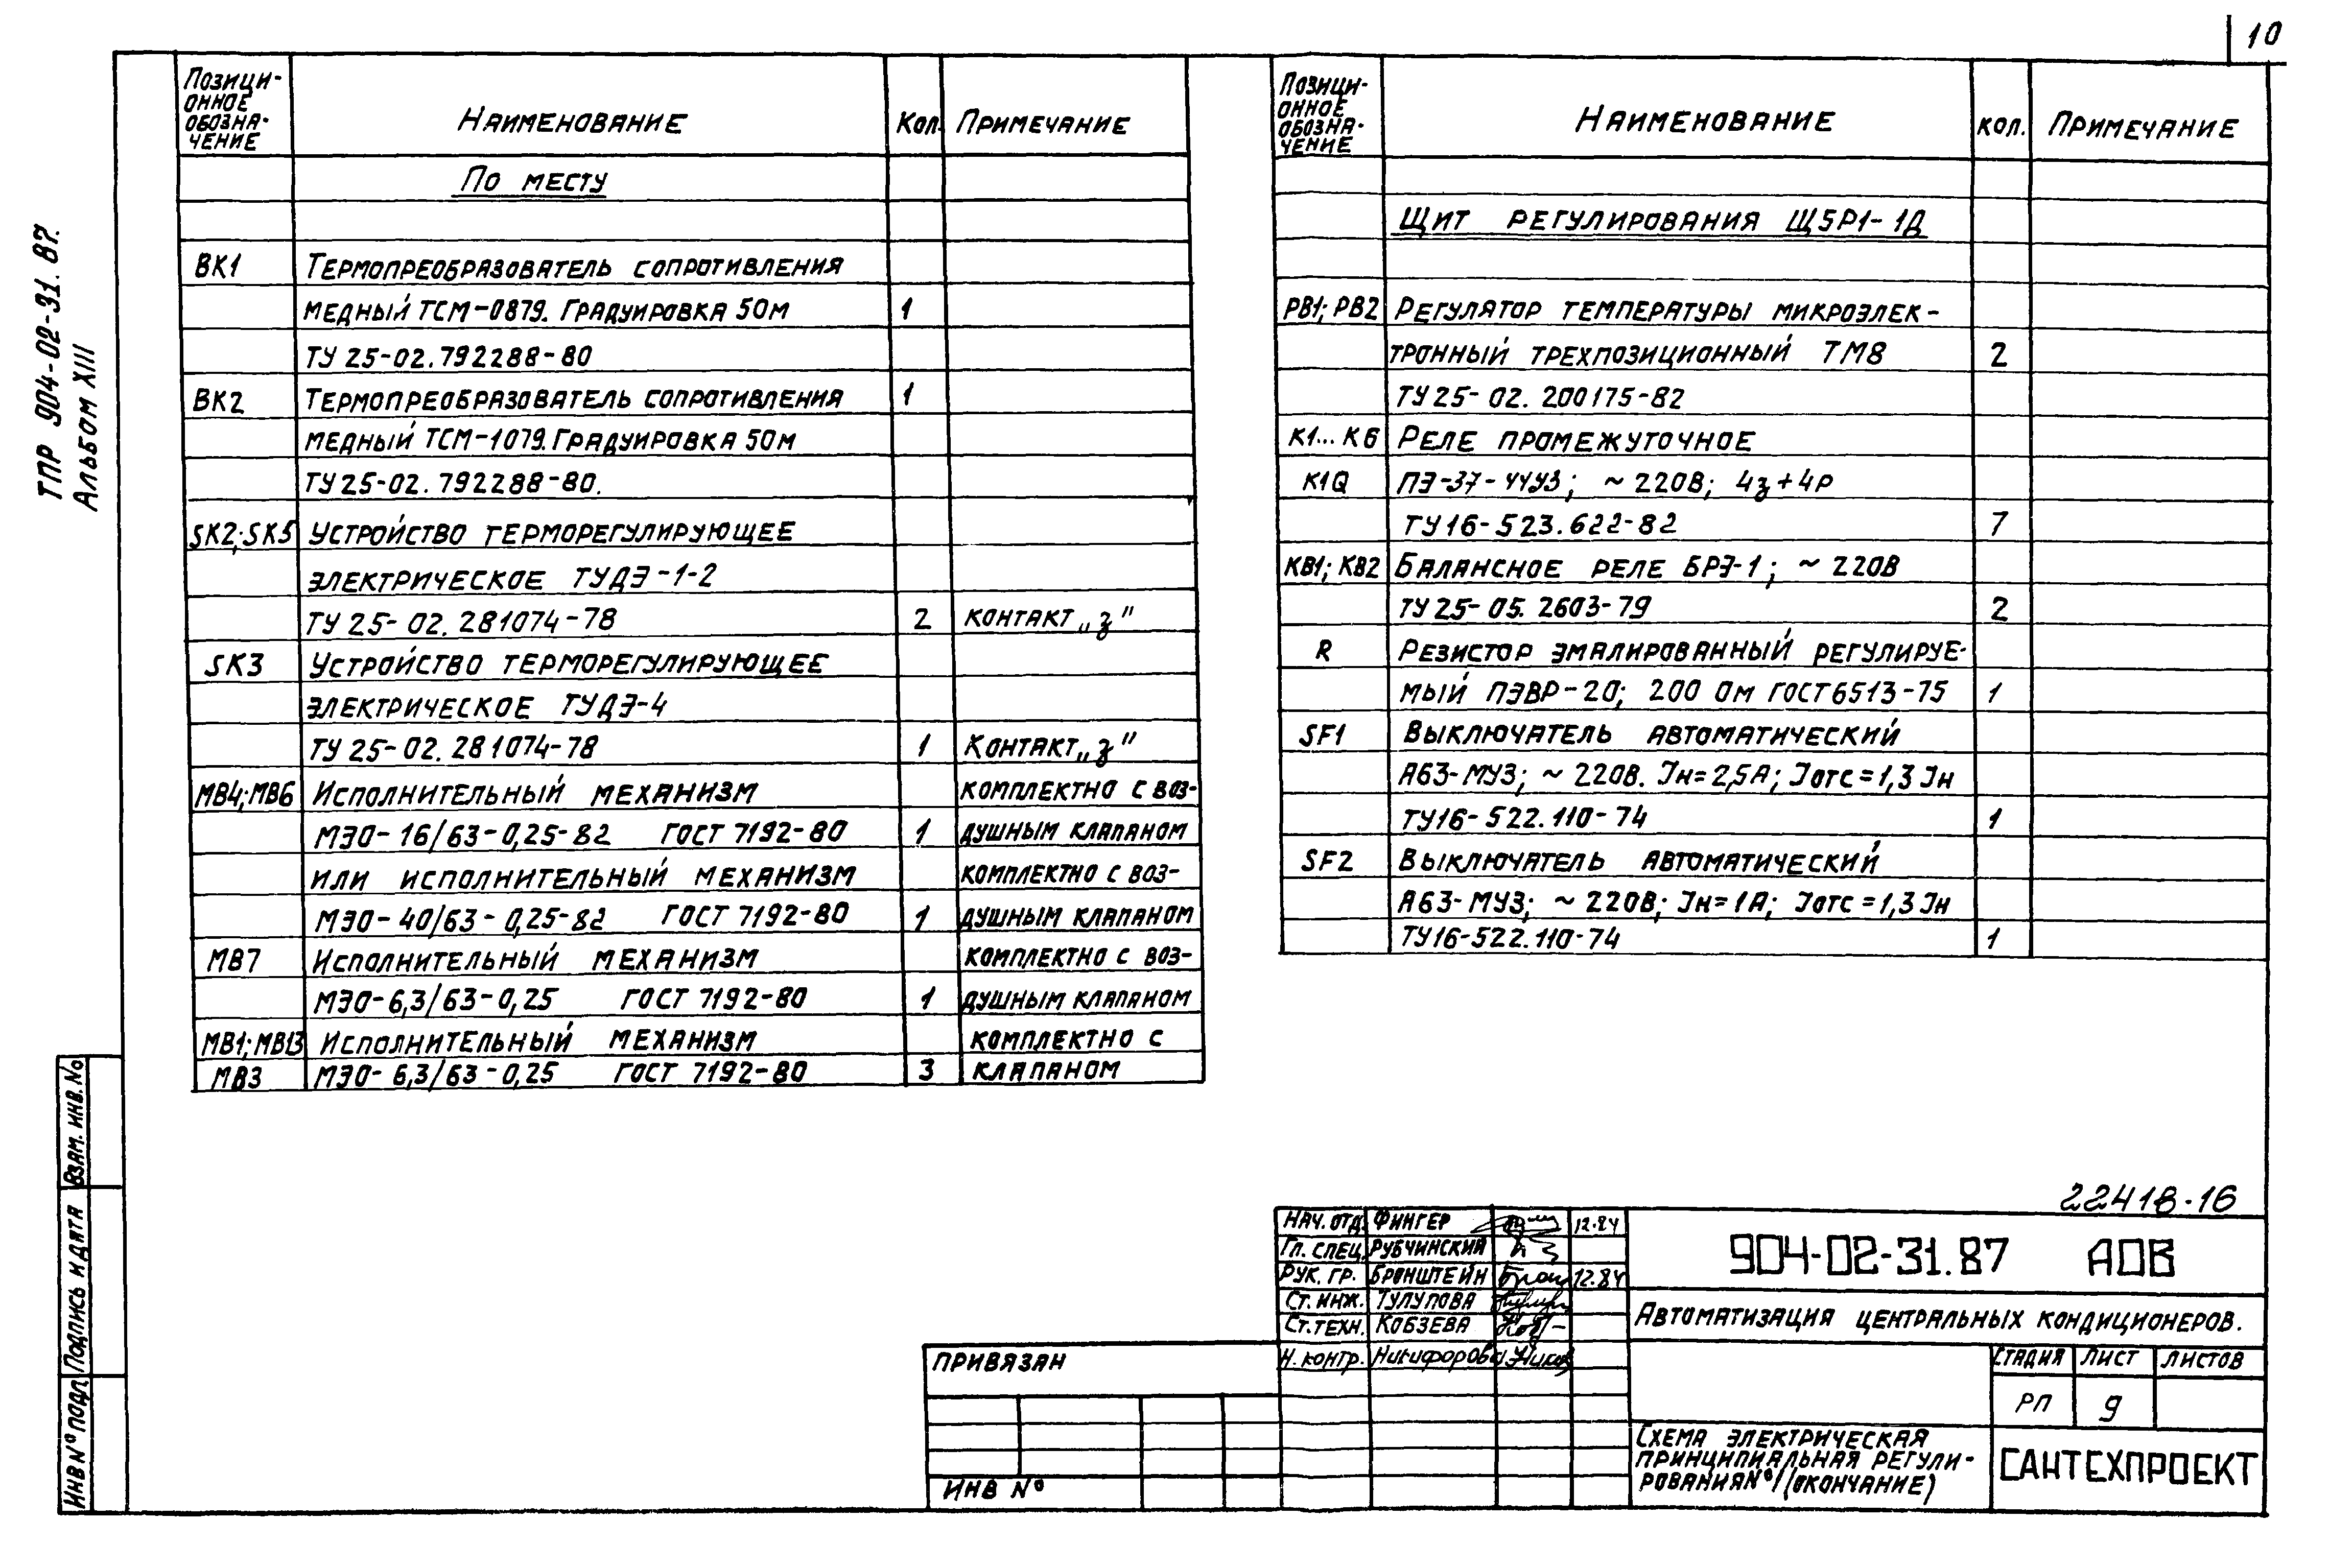 10
ТПР 904-02-31.87.
Альбом XIII
Позици-
онное
обозна-
чение
Наименование
Кол.
Примечание
По месту
ВК1 Термопреобразователь сопротивления
медный ТСМ-0879. Градуировка 50м 1
ТУ 25-02.792288-80
ВК2 Термопреобразователь сопротивления 1
медный ТСМ-1079. Градуировка 50м
ТУ 25-02.792288-80.
SK2; SK5 Устройство терморегулирующее
электрическое ТУДЭ-1-2
ТУ 25-02.281074-78 2 контакт „з"
SK3 Устройство терморегулирующее
электрическое ТУДЭ-4
ТУ 25-02.281074-78 1 Контакт „з"
МВ4; МВ6 Исполнительный механизм комплектно с воз-
МЭО-16/63-0,25-82 ГОСТ 7192-80 1 душным клапаном
или исполнительный механизм комплектно с воз-
МЭО-40/63-0,25-82 ГОСТ 7192-80 1 душным клапаном
МВ7 Исполнительный механизм комплектно с воз-
МЭО-6,3/63-0,25 ГОСТ 7192-80 1 душным клапаном
МВ1; МВ13 Исполнительный механизм комплектно с
МВ3 МЭО-6,3/63-0,25 ГОСТ 7192-80 3 клапаном
Позици-
онное
обозна-
чение
Наименование
кол.
Примечание
Щит регулирования Щ5Р1-1Д
РВ1; РВ2 Регулятор температуры микроэлек-
тронный трехпозиционный ТМ8 2
ТУ 25-02.200175-82
К1...К6 Реле промежуточное
К1Q ПЭ-37-44У3; ~220В; 4з+4р
ТУ16-523.622-82 7
КВ1; КВ2 Балансное реле БРЭ-1; ~220В
ТУ 25-05.2603-79 2
R Резистор эмалированный регулируе-
мый ПЭВР-20; 200 Ом ГОСТ 6513-75 1
SF1 Выключатель автоматический
А63-МУ3; ~220В. Iн=2,5А; Iотс=1,3Iн
ТУ16-522.110-74 1
SF2 Выключатель автоматический
А63-МУ3; ~220В; Iн=1А; Iотс=1,3Iн
ТУ16-522.110-74 1
22418-16
Нач. отд. Фингер 12.84
Гл. спец. Рубчинский
Рук. гр. Бронштейн 12.84
Ст. инж. Тулупова
Ст. техн. Кобзева
Н. контр. Никифорова
904-02-31.87 АОВ
Автоматизация центральных кондиционеров.
Стадия Лист Листов
РП 9
Схема электрическая
принципиальная регули-
рования №1 (окончание)
САНТЕХПРОЕКТ
Привязан
Инв №
Взам. инв. №
Подпись и дата
Инв № подл.